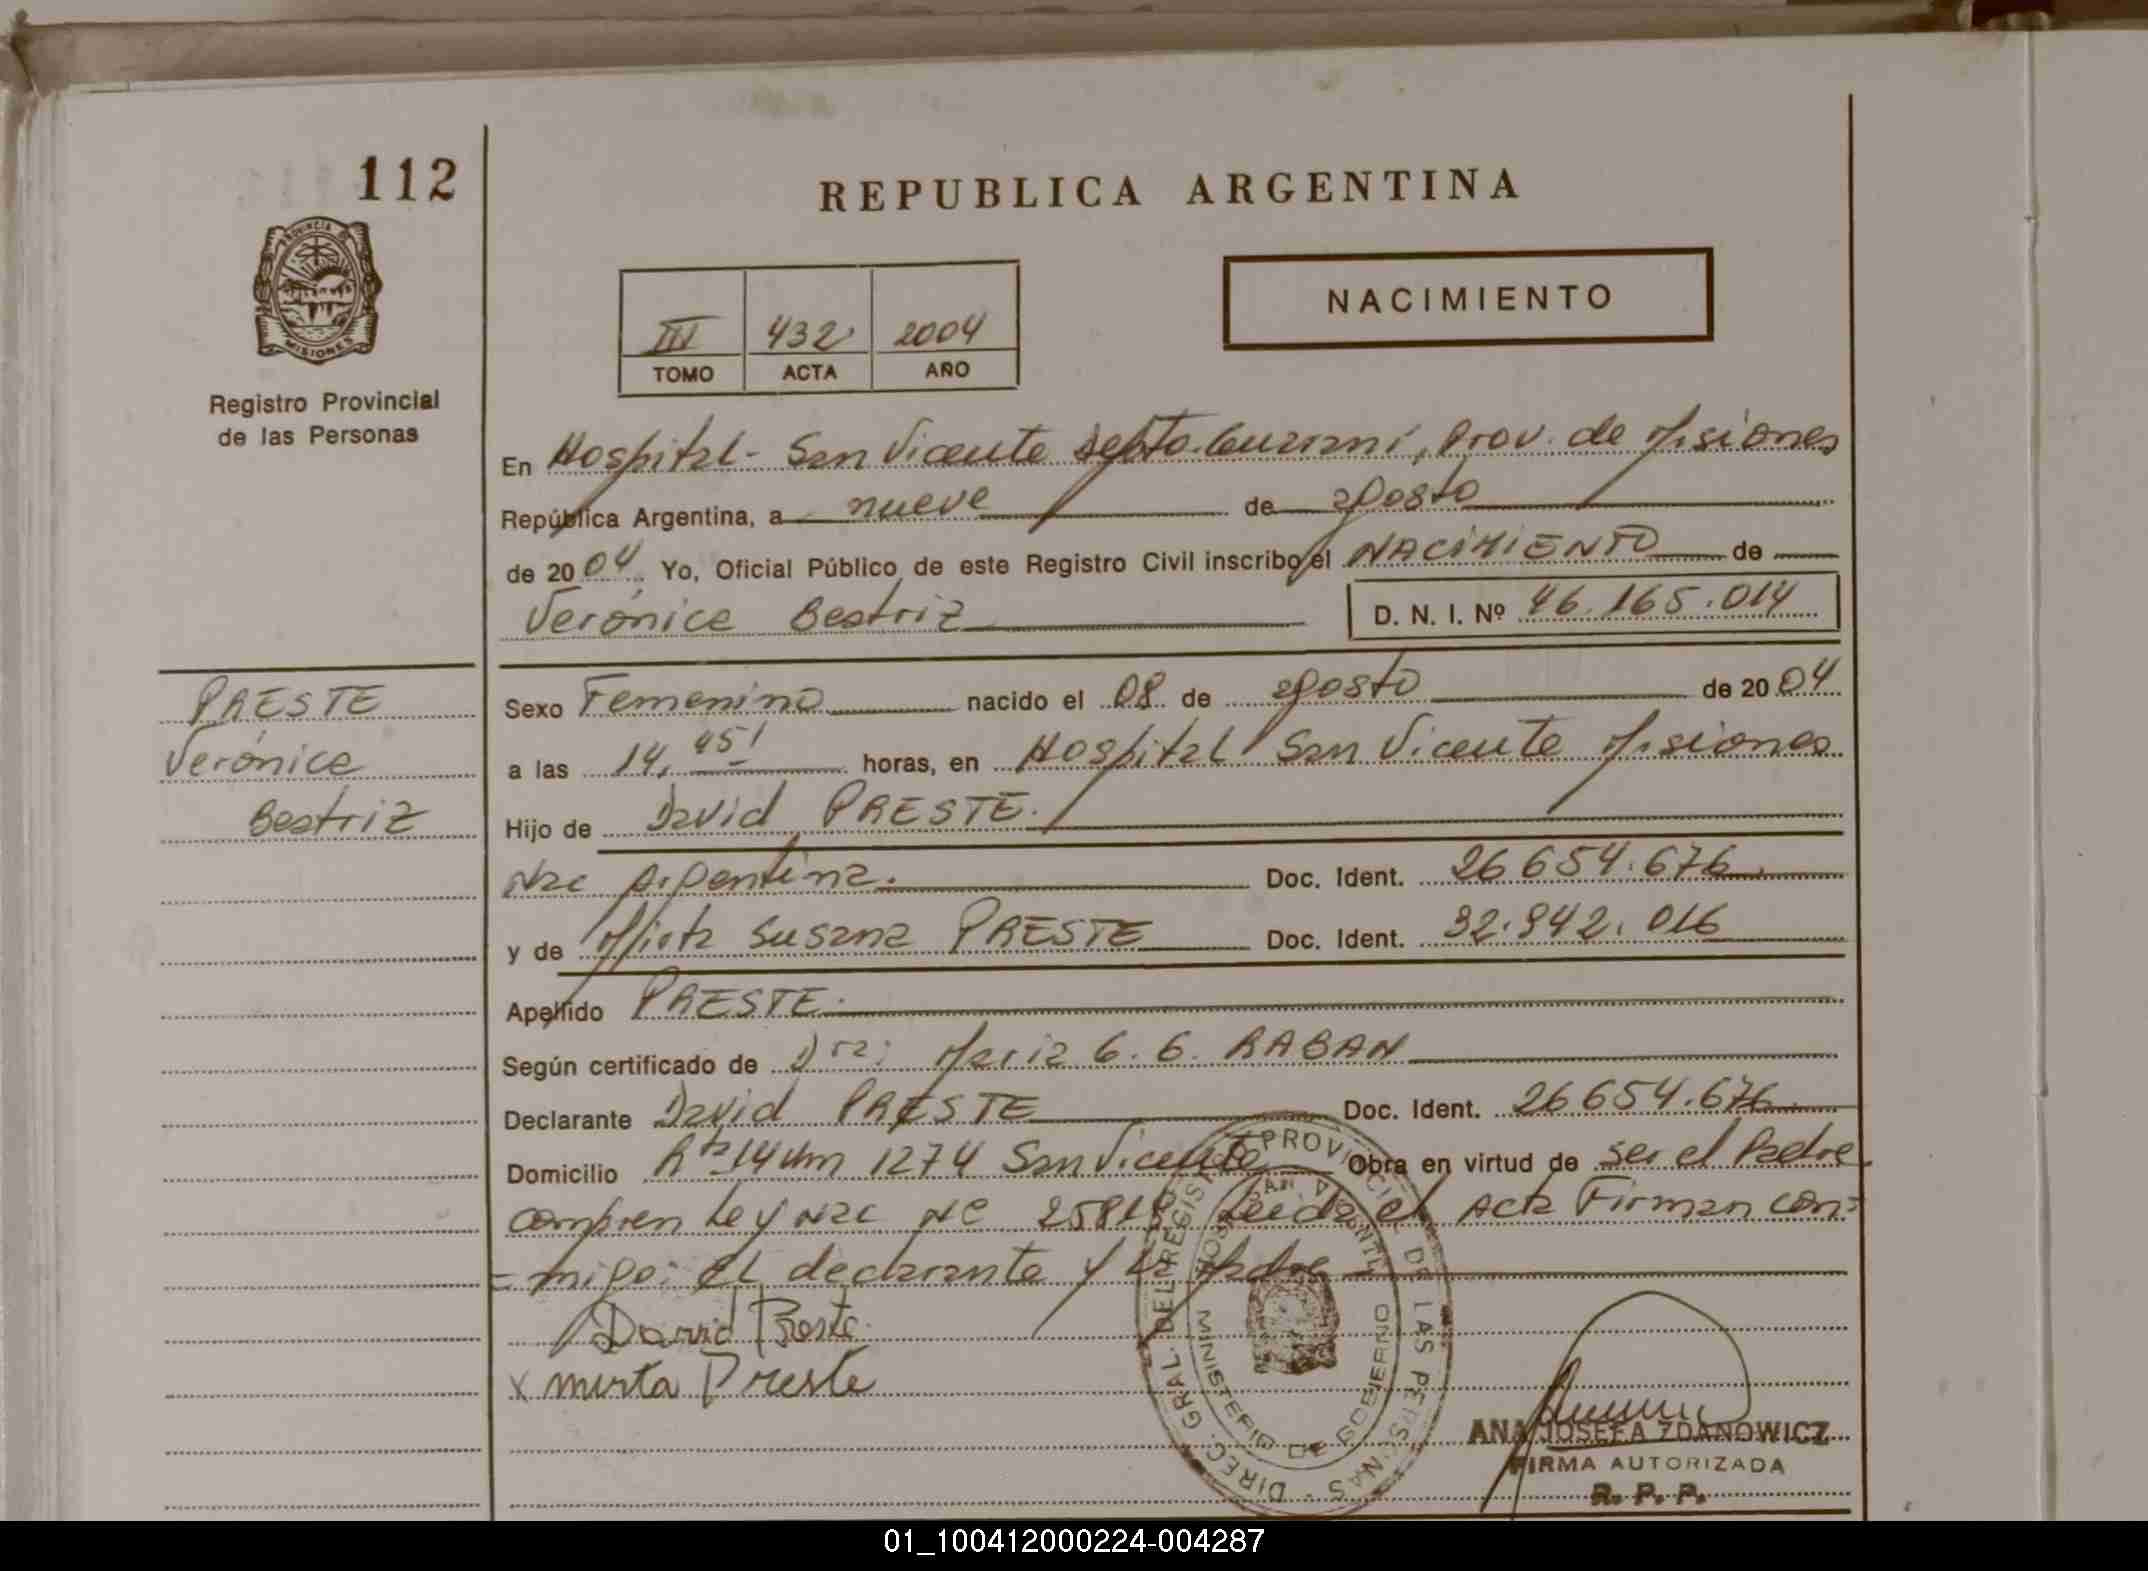 112
REPUBLICA ARGENTINA
PROVINCIA DE
MISIONES
Registro Provincial
de las Personas
III 432 2004
TOMO ACTA AÑO
NACIMIENTO
En Hospital - San Vicente Depto. Guaraní, Prov. de Misiones
República Argentina, a nueve de agosto
de 2004 Yo, Oficial Público de este Registro Civil inscribo el NACIMIENTO de
Verónica Beatriz D. N. I. Nº 46.165.014
PRESTE
Verónica
Beatriz
Sexo Femenino nacido el 08 de agosto de 2004
a las 14,45' horas, en Hospital San Vicente Misiones
Hijo de David PRESTE.
Nac Argentina. Doc. Ident. 26654.676
y de Mirta Susana PRESTE Doc. Ident. 32.942.016
Apellido PRESTE.
Según certificado de Dra: Maria G. G. RABAN
Declarante David PRESTE Doc. Ident. 26654.676
Domicilio Rta 14 Km 1274 San Vicente Obra en virtud de ser el Padre
Ley Nac Nº 25818 Leida el Acta Firman con=
=migo: El declarante y la Madre
David Preste
x mirta Preste
DIREC. GRAL. DEL REGIST. PROVINCIAL DE LAS PERSONAS
HOSP. SAN VICENTE
MINISTERIO DE GOBIERNO
ANA JOSEFA ZDANOWICZ
FIRMA AUTORIZADA
R. P. P.
01_100412000224-004287